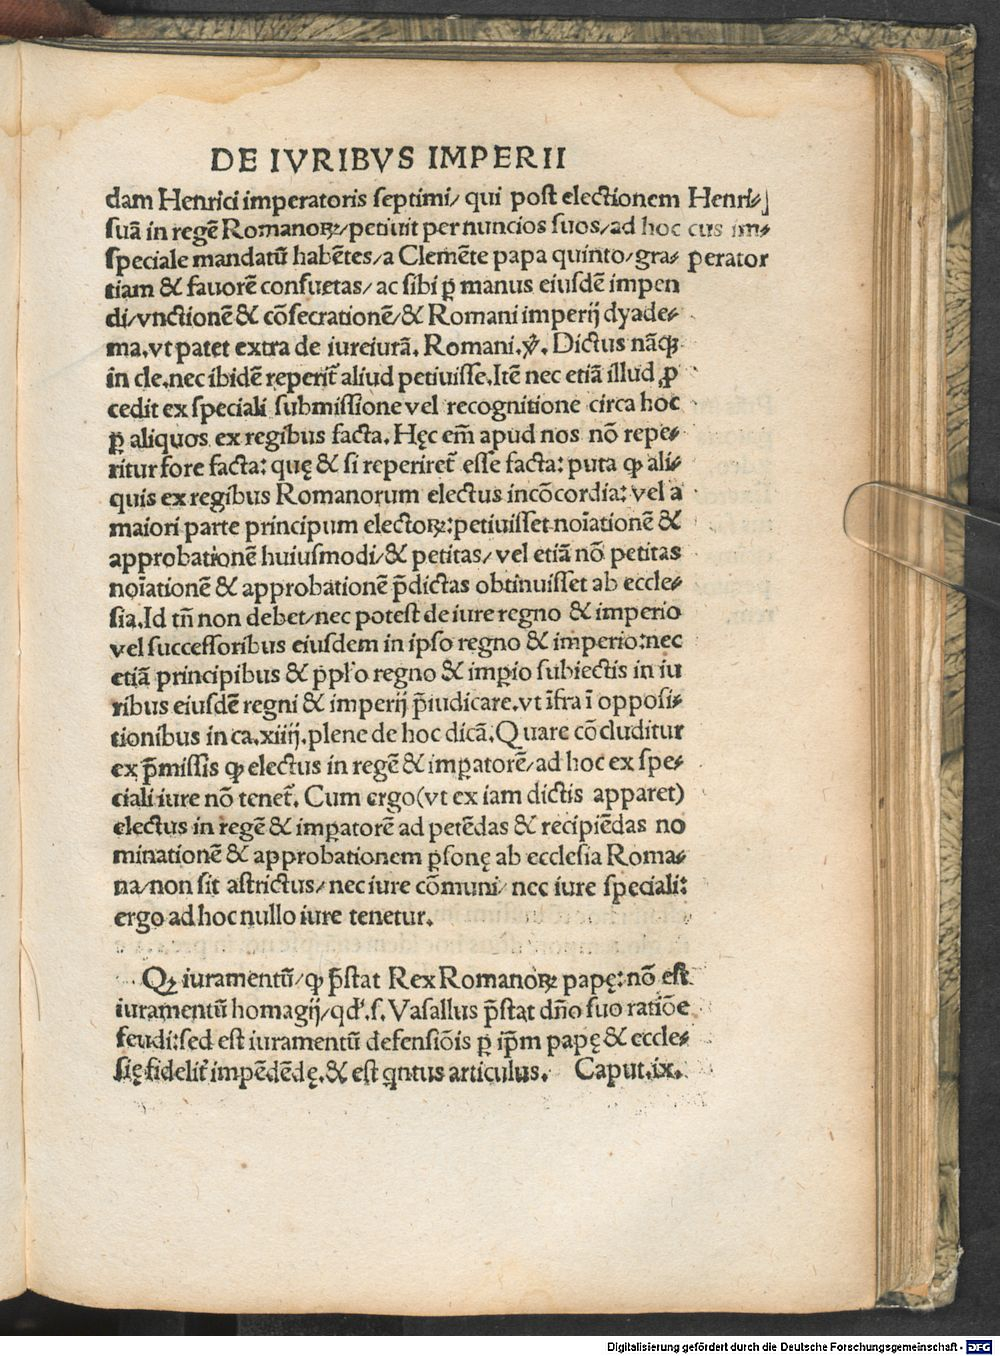 DE IVRIBVS IMPERII
dam Henrici imperatoris septimi/ qui post electionem
suã in regẽ Romanoꝝ/petiuit per nuncios suos/ad hoc
speciale mandatũ habẽtes/a Clemẽte papa quinto/gra⸗
tiam & fauorẽ consuetas/ ac sibi ꝑ manus eiusdẽ impen
di/vnctionẽ & cõsecrationẽ/& Romani imperij dyade⸗
ma.vt patet extra de iureiurã. Romani.ꝟ. Dictus nãqꝫ
in cle.nec ibidẽ reperit᷑ aliud petiuisse.Itẽ nec etiã illud ꝓ
cedit ex speciali submissione vel recognitione circa hoc
ꝑ aliquos ex regibus facta. Hęc em̃ apud nos nõ repe⸗
ritur fore facta: quę & si reperiret᷑ esse facta: puta ꝙ ali⸗
quis ex regibus Romanorum electus incõcordia: vel a
maiori parte principum electoꝝ:petiuisset noĩationẽ &
approbationẽ huiusmodi/& petitas/ vel etiã nõ petitas
noĩationẽ & approbationẽ p̃dictas obtinuisset ab eccle⸗
sia.Id tñ non debet/nec potest de iure regno & imperio
vel successoribus eiusdem in ipso regno & imperio:nec
etiã principibus & ppl'o regno & imꝑio subiectis in iu
ribus eiusdẽ regni & imperij p̃iudicare.vt ĩfra ĩ opposi⸗
tionibus in ca.xiiij.plene de hoc dicã.Quare cõcluditur
ex p̃missis ꝙ electus in regẽ & imꝑatorẽ/ad hoc ex spe⸗
ciali iure nõ tenet᷑. Cum ergo(vt ex iam dictis apparet)
electus in regẽ & imꝑatorẽ ad petẽdas & recipiẽdas no
minationẽ & approbationem ꝑsonę ab ecclesia Roma⸗
na/non sit astrictus/nec iure cõmuni/ nec iure speciali:
ergo ad hoc nullo iure tenetur.
Henri⸗
cus im⸗
perator
Qꝫ iuramentũ/ꝙ p̃stat Rex Romanoꝝ papę:nõ est
iuramentũ homagij/qd'.s.Vasallus p̃stat dño suo ratiõe
feudi:sed est iuramentũ defensiõis ꝑ ip̃m papę & eccle⸗
się fidelit᷑ impẽdẽdę.& est qntus articulus. Caput.ix.
Digitalisierung gefördert durch die Deutsche Forschungsgemeinschaft - DFG